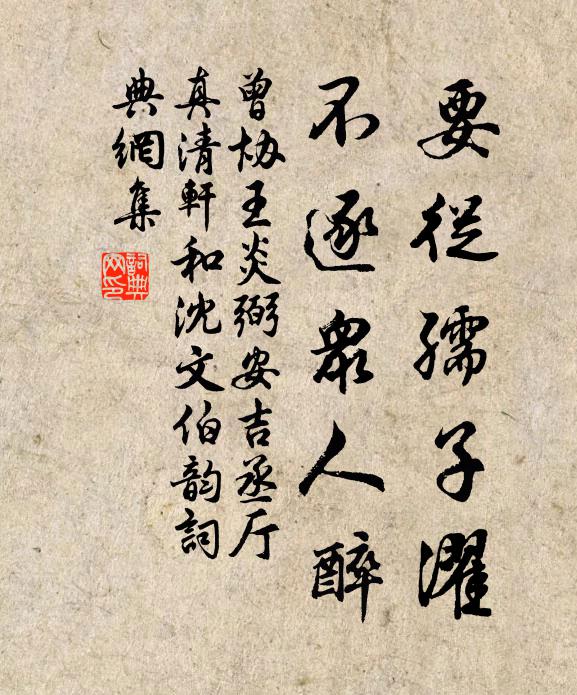 要從孺子濯
不逐衆人醉
曾协王炎弼安吉丞厅
真清軒和沈文伯韵詞
典網集
詞典網印